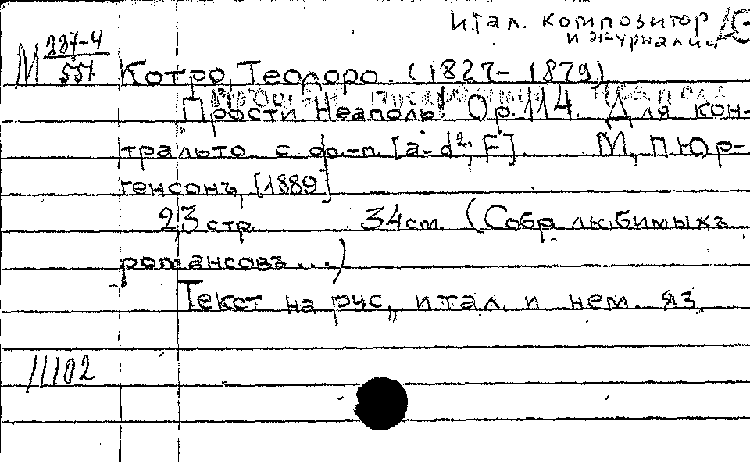 Итал. композитор
и журналист
М 227-4
551
Котро, Теодоро. (1827-1879)
Прости Неаполь! Op. 114. Для кон-
тральто с ф.-п. [a-d², F]. М., П. Юр-
генсонъ, [1880]
23 стр. 34 см. (Собр. любимыхъ
романсовъ...)
Текст на рус., итал. и нем. яз.
11102